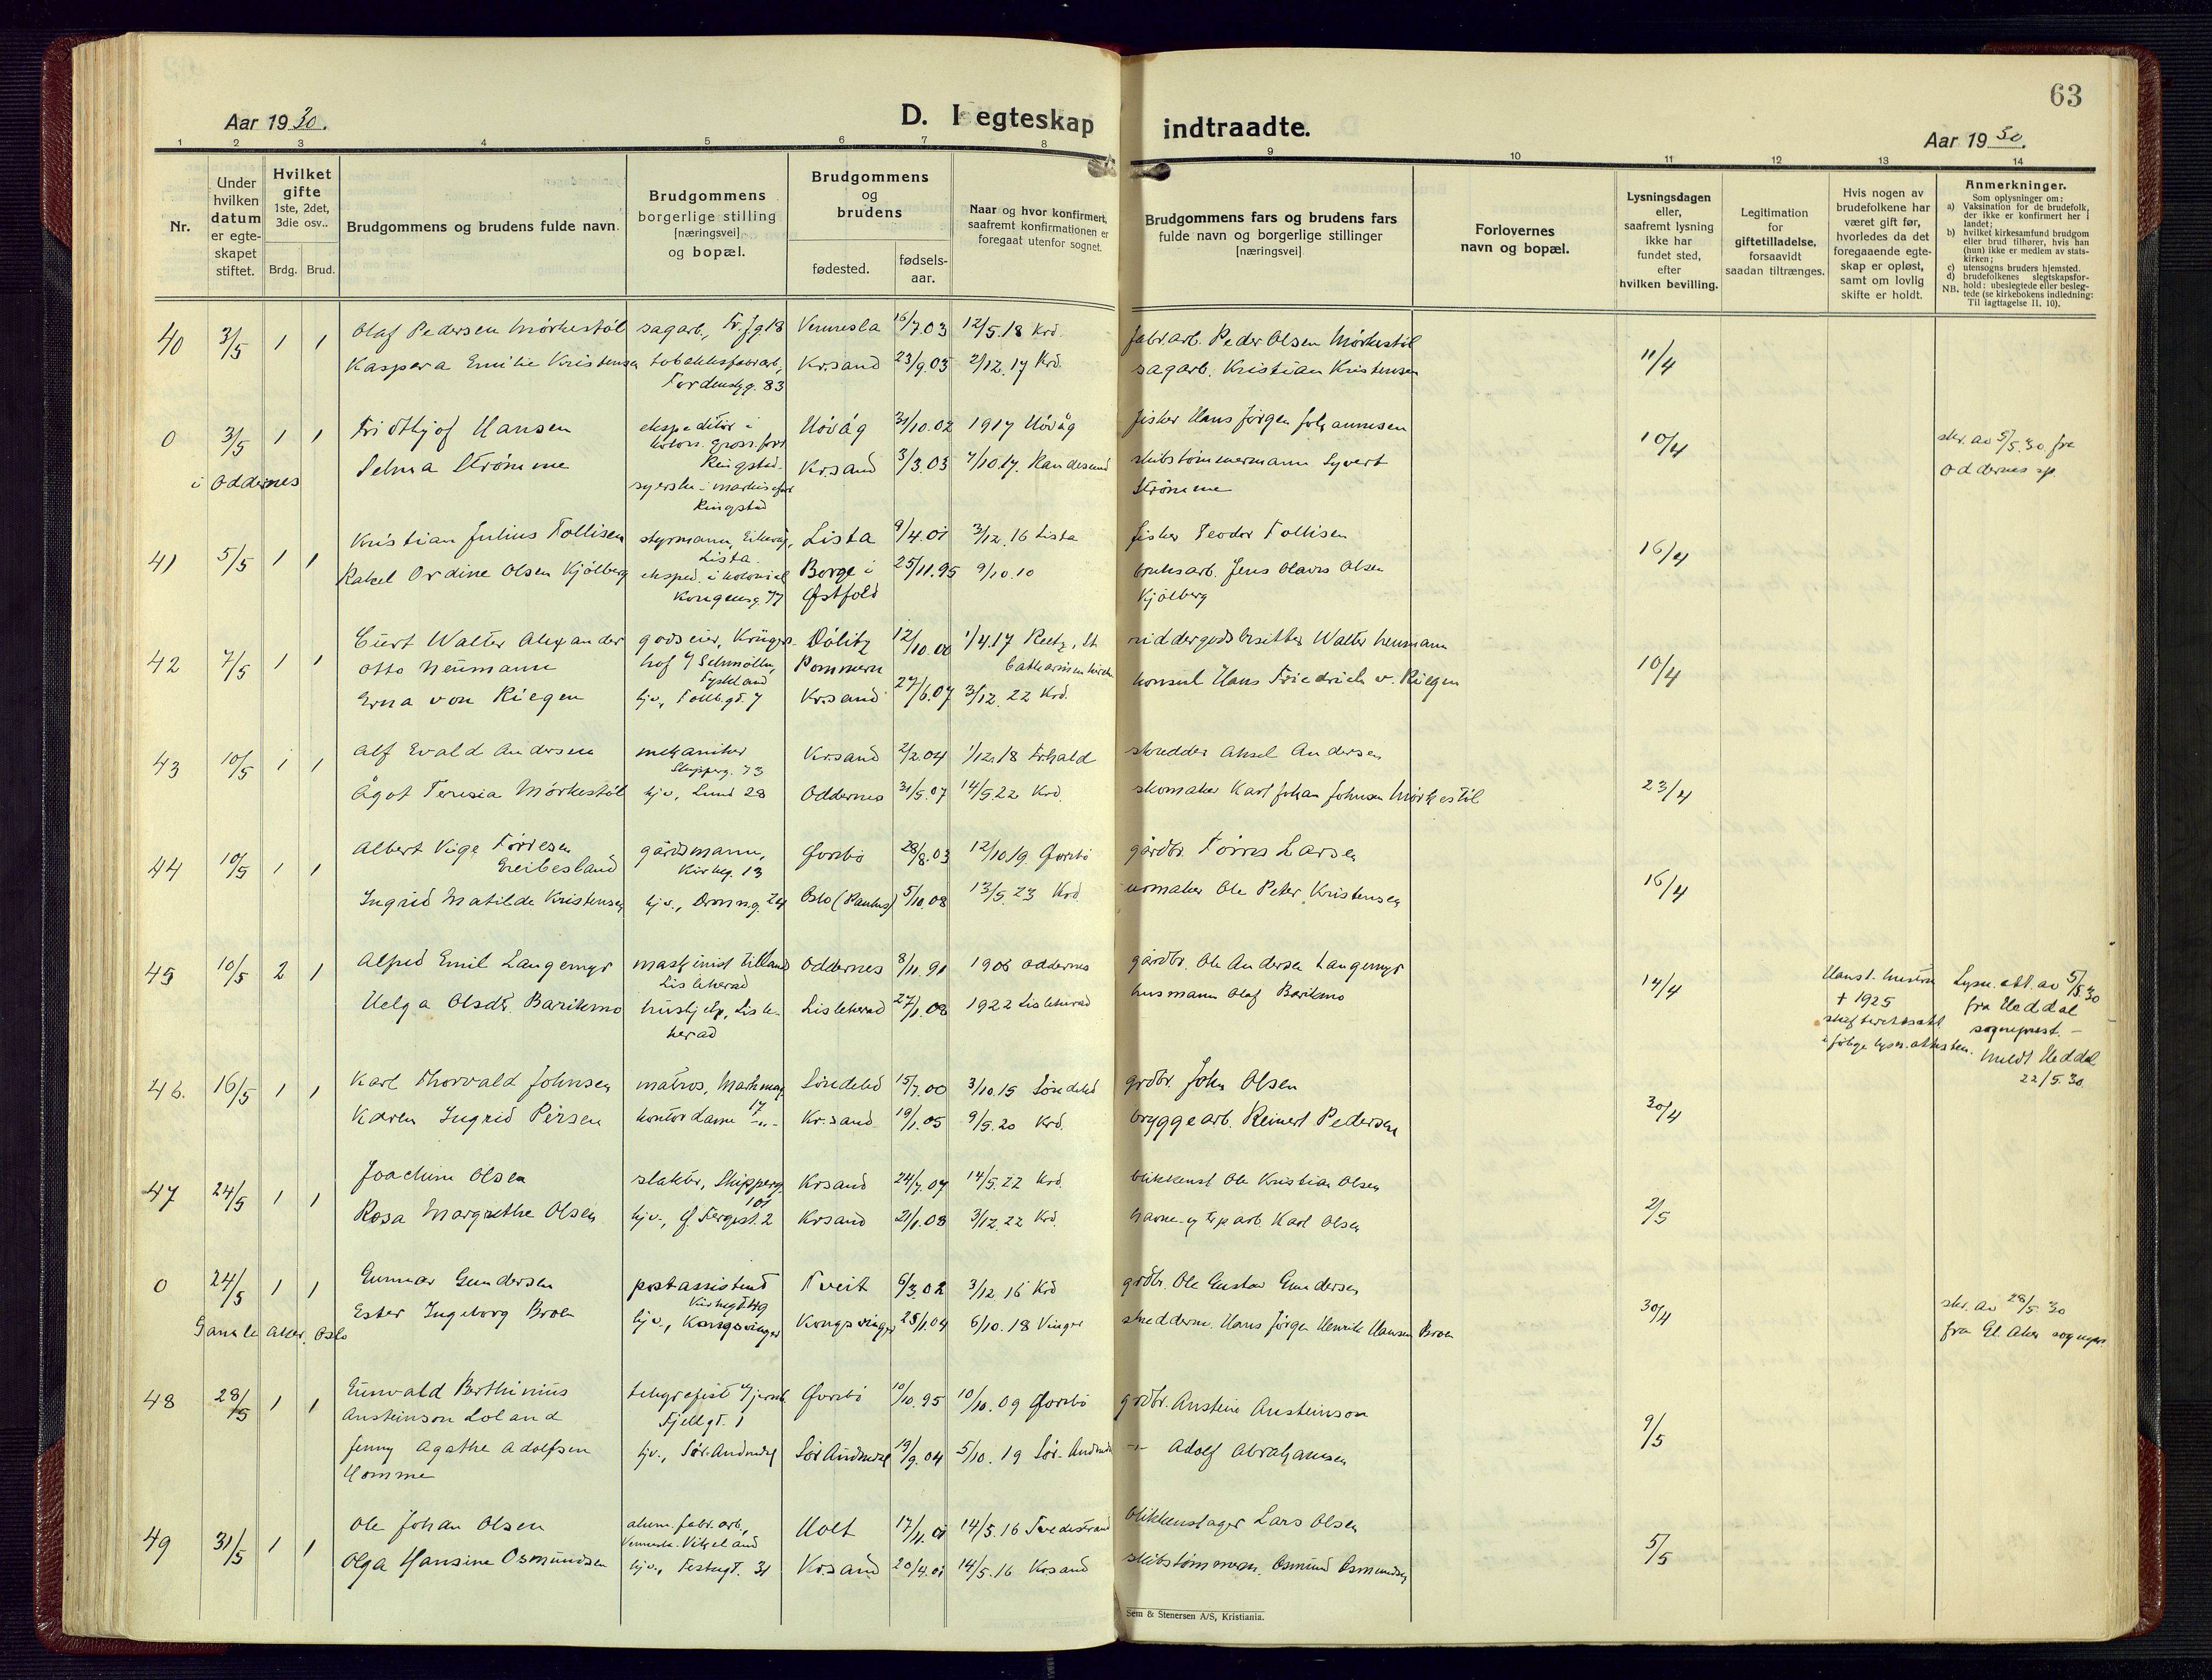 63
Aar 1930.
D. I egteskap indtraadte.
Aar 1930.
1 2 3 4 5 6 7 8 9 10 11 12 13 14
Nr.
Under hvilken datum er egte-skapet stiftet.
Hvilket gifte 1ste, 2det, 3die osv..
Brdg. Brud.
Brudgommens og brudens fulde navn.
Brudgommens borgerlige stilling [næringsvei] og bopæl.
Brudgommens og brudens
fødested.
fødsels-aar.
Naar og hvor konfirmert, saafremt konfirmationen er foregaat utenfor sognet.
Brudgommens fars og brudens fars fulde navn og borgerlige stillinger [næringsvei]
Forlovernes navn og bopæl.
Lysningsdagen eller, saafremt lysning ikke har fundet sted, efter hvilken bevilling.
Legitimation for giftetilladelse, forsaavidt saadan tiltrænges.
Hvis nogen av brudefolkene har været gift før, hvorledes da det foregaaende egte-skap er opløst, samt om lovlig skifte er holdt.
Anmerkninger.
Som oplysninger om:
a) Vaksination for de brudefolk, der ikke er konfirmert her i landet;
b) hvilket kirkesamfund brudgom eller brud tilhører, hvis han (hun) ikke er medlem av stats-kirken;
c) utensogns bruders hjemsted.
d) brudefolkenes slegtskapsfor-hold: ubeslegtede eller besleg-tede (se kirkebokens indledning: NB. Til iagttagelse II, 10).
40 3/5 1 1 Olaf Pedersen Mörkestöl sagarb., Fr. fg 18 Vennesla 16/7.03 12/5.18 Krd. fabr.arb. Peder Olsen Mörkestöl 11/4
Kaspara Emilie Kristensen tobakksfabrarb., Tordenskj.g. 83 Kr.sand 23/9.05 2/12.17 Krd. sagarb. Kristian Kristensen
0 3/5 1 1 Fridthjof Hansen ekspeditör i kolon. gross.forr. Ringstad Hövåg 31/10.02 1917 Hövåg fisker Hans Jörgen Johannesen 10/4 skr. av 5/5.30 fra
i Oddernes Selma Strömme syerske i Ringstad Kr.sand 3/3.03 7/10.17. Randesund skibstömmermann Syvert Strömme Oddernes sp.
41 5/5 1 1 Kristian Julius Tollisen styrmann, Lista Lista 9/4.01 3/12.16 Lista fisker Teodor Tollisen 16/4
Rakel Ordine Olsen Kjölberg eksped. i kolonial Kongensg. 77 Borge i Østfold 25/11.95 9/10.10 bruksarb. Jens Olaves Olsen Kjölberg
42 7/5 1 1 Curt Walter Alexander godseier, Krügers- Dölitz 12/10.00 1/4.17 Reetz, St. riddergodsbesitter Walter Neumann 10/4
Otto Neumann hof Schmölln, Tyskland Pommern Catharinenkirche
Erna von Riegen hjv., Tollb.gt. 7 Kr.sand 27/6.07 3/12.22 Krd. konsul Hans Friedrich v. Riegen
43 10/5 1 1 Alf Evald Andersen mekaniker Skipperg. 73 Kr.sand 2/2.04 1/12.18 Fr.hald skredder Aksel Andersen 23/4
Ågot Teresia Mörkestöl hjv., Lund 28 Oddernes 31/5.07 14/5.22 Krd. skomaker Karl Johan Johnsen Mörkestöl
44 10/5 1 1 Albert Vige Törresen Greibesland gårdsmann, Kirkeg. 13 Øvrebö 28/8.03 12/10.19. Øvrebö gårdbr. Törres Larsen 16/4
Ingrid Matilde Kristensen hjv., Dronn.g. 24 Oslo (Paulus) 5/10.08 13/5.23 Krd. urmaker Ole Peter Kristensen
45 10/5 2 1 Alfred Emil Langemyr maskinist Lisleherad Oddernes 8/11.91 1906 Oddernes gårdbr. Ole Andersen Langemyr 14/4 Hans 1. hustru + 1925 Lysn. att. av 5/5.30
Helga Olsdt. Barikmo hushjelp, Lisle-herad Lisleherad 27/1.08 1922 Lisleherad husmann Olaf Barikmo ifölge lysn.attesten. fra Heddal sogneprest. - Meldt Heddal 22/5.30.
46. 16/5 1 1 Karl Thorvald Johnsen matros, Markensg. 17 Söndeled 15/7.00 3/10.15 Söndeled grdbr. John Olsen 30/4
Karen Ingrid Persen kontordame -"- Kr.sand 19/1.05 9/5.20 Krd. bryggearb. Reinert Pedersen
47 24/5 1 1 Joachim Olsen slakter, Skipperg. 101 Krsand 24/7.07 14/5.22 Krd. blikkensl. Ole Kristian Olsen 2/5
Rosa Margrethe Olsen hjv., Ø. Fergest. 2 Krsand 21/1.08 3/12.22 Krd. havne- og arb. Karl Olsen
0 24/5 1 1 Gunnar Gundersen postassistent Kirkegt. 49 Tveit 6/3.02 3/12.16 Krd grdbr. Ole Gustav Gundersen 30/4 skr. av 28/5.30
Gamle Aker, Oslo Ester Ingeborg Broen hjv., Kongsvinger Kongsvinger 25/1.04 6/10.18 Vinger skredderm. Hans Jörgen Henrik Hansen Broen fra Gl. Aker sognepr.
48 28/5 1 1 Eunvald Berthinius telegrafist v/jernb. Fjellgt. 1 Øvrebö 10/10.95 10/10.09 Øvrebö grdbr. Austein Austeinson 9/5
Austeinson Loland
Jenny Agathe Adolfsen Homme hjv., Sör-Audnedal Sör Audnedal 19/9.04 5/10.19 Sör-Audnedal -"- Adolf Abrahamsen
49 31/5 1 1 Ole Johan Olsen alum.fabr.arb., Vennesla-Vikeland Holt 17/11.01 14/5.16 Tvedestrand blikkenslager Lars Olsen 5/5
Olga Hansine Osmundsen hjv., Festn.gt. 31 Kr.sand 20/4.01 14/5.16 Krsand skibstömmerm. Osmund Osmundsen
Sem & Stenersen A/S, Kristiania.